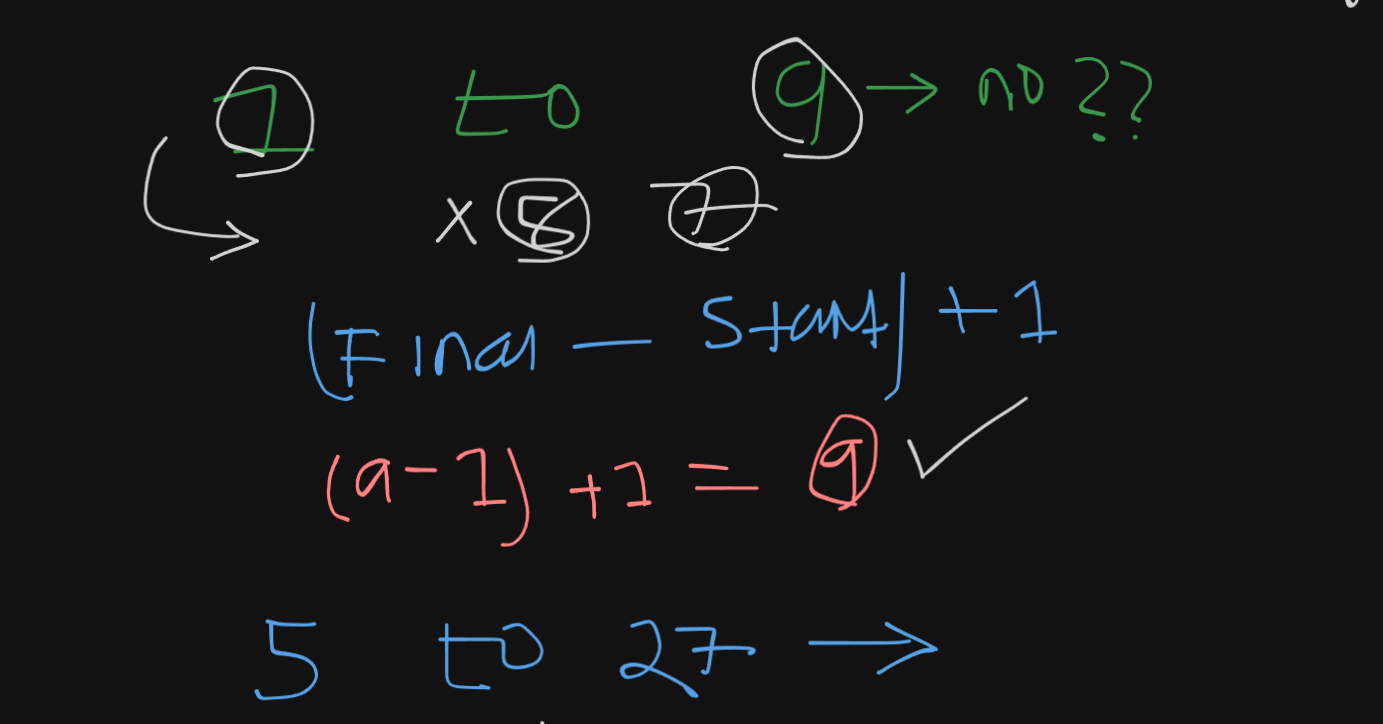 1 to 9 → no ??
× 5 7
(Final − Start) + 1
(9 − 1) + 1 = 9 ✓
5 to 27 →